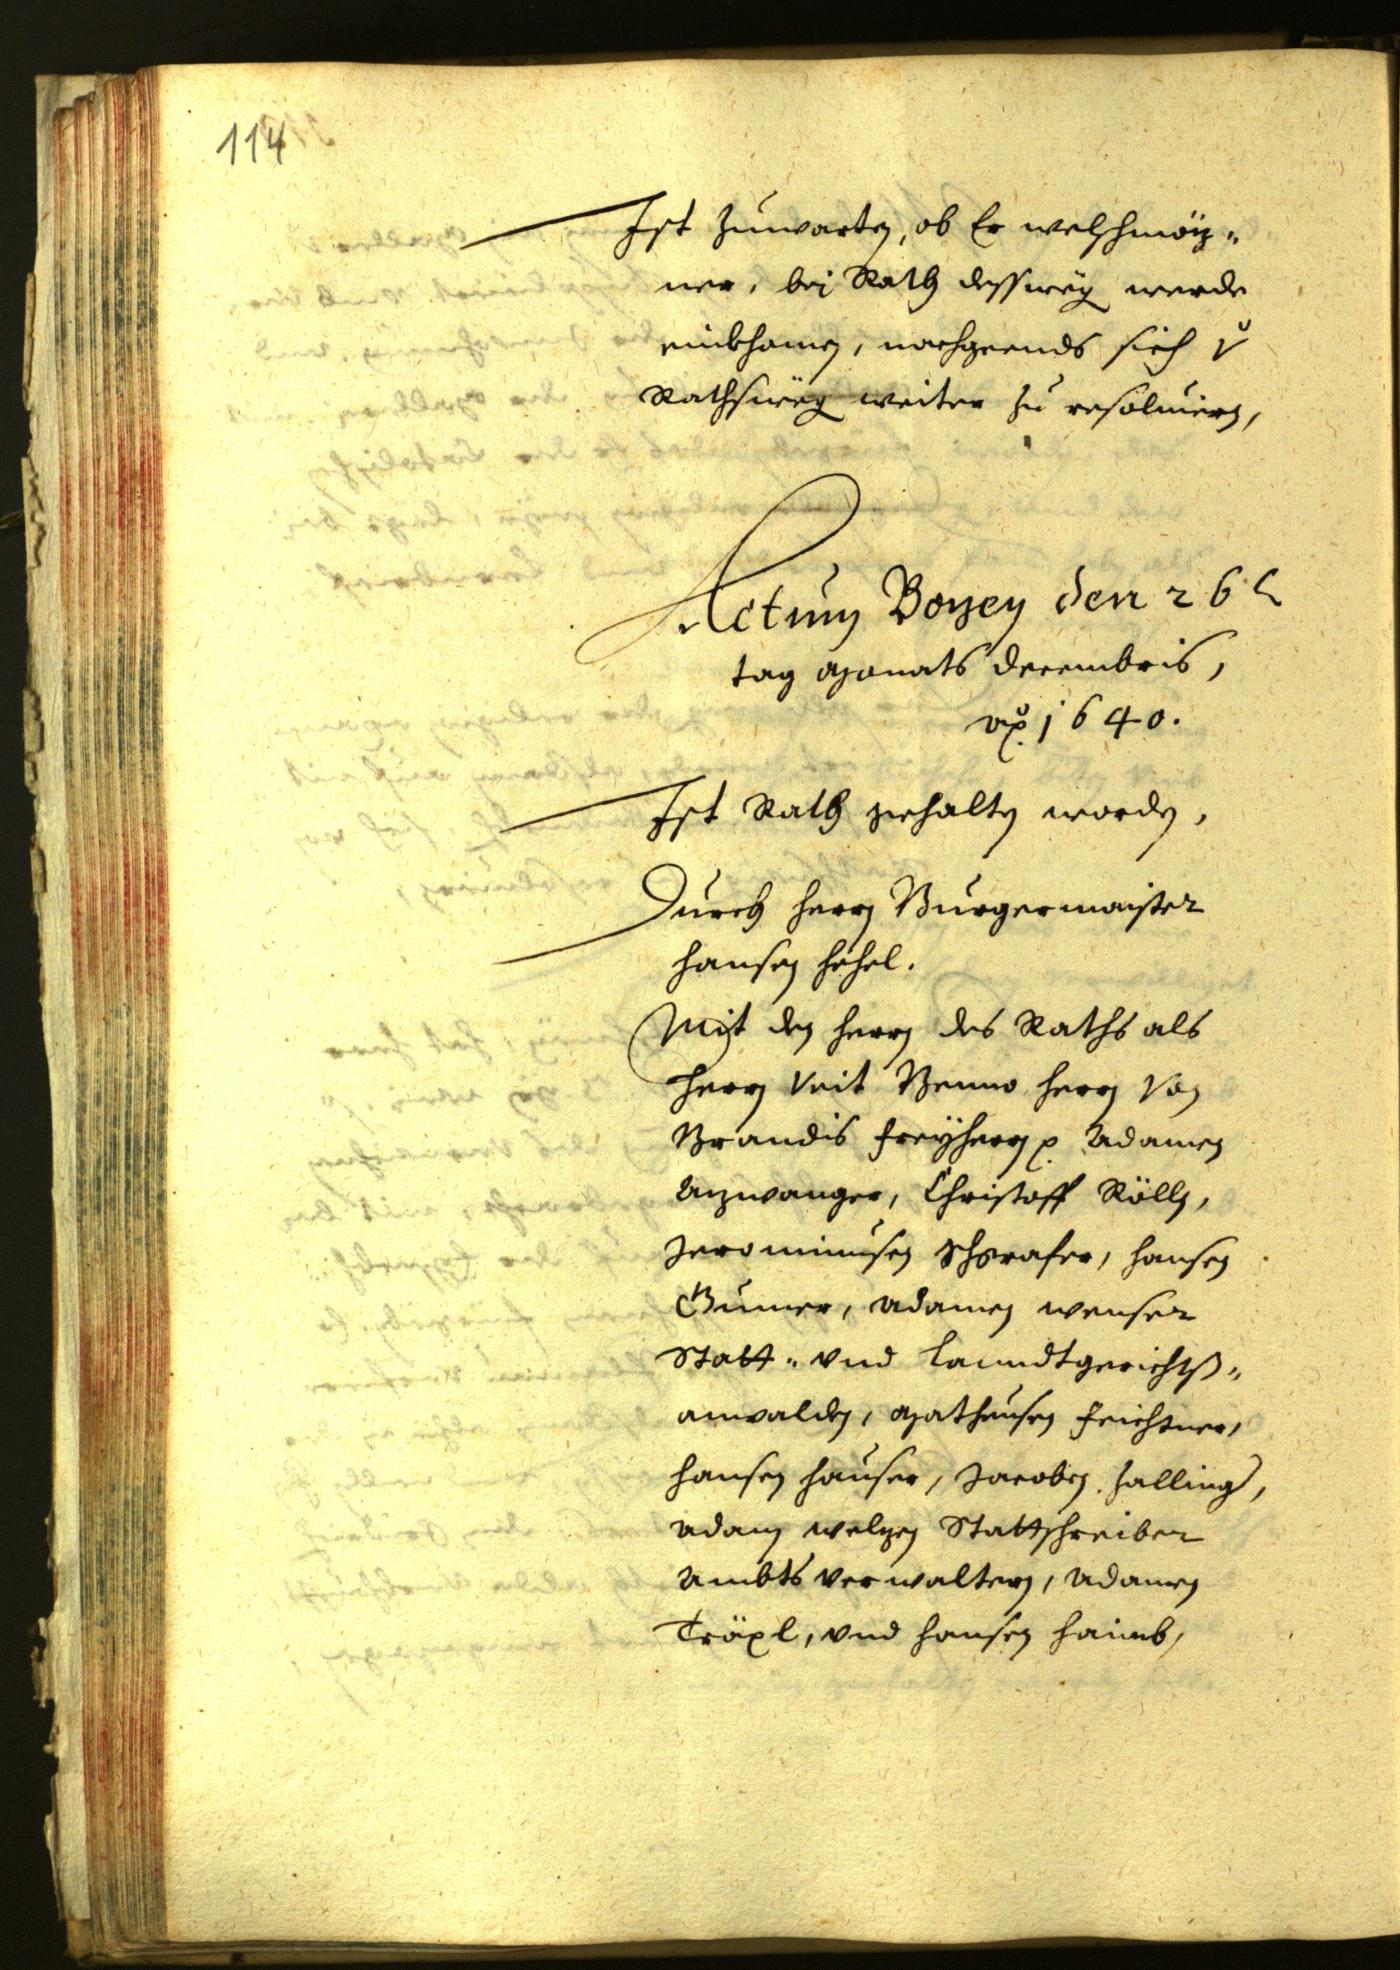 114
Ist zuwarten, ob Er welschmöz„
ner, bej Rath dessweg werde
einkhomen, nachgeends sich v̊
Rathsweg weiter zu resoluiern,
Actum Bozen den 26
tag Monats Decembris,
1640.
Ist Rath gehalten worden,
Durch herrn Burgermaister
Hansen Hehel.
Mit den herrn des Raths als
herrn Veit Benno herrn Von
Brandis freyherrn p Adamen
Anzwanger, Christoff Rölln,
Jeronimusen Schrafer, Hansen
Gumer, Adamen Wenser
Statt„ vnd Lanndtgerichts„
anwalden, Matheusen Feichtner,
Hansen Hauser, Jacoben Zalling,
Adam Welzen Stattschreiber
Ambtsverwaltern, Adamen
Träxl, vnd Hansen Haimb,